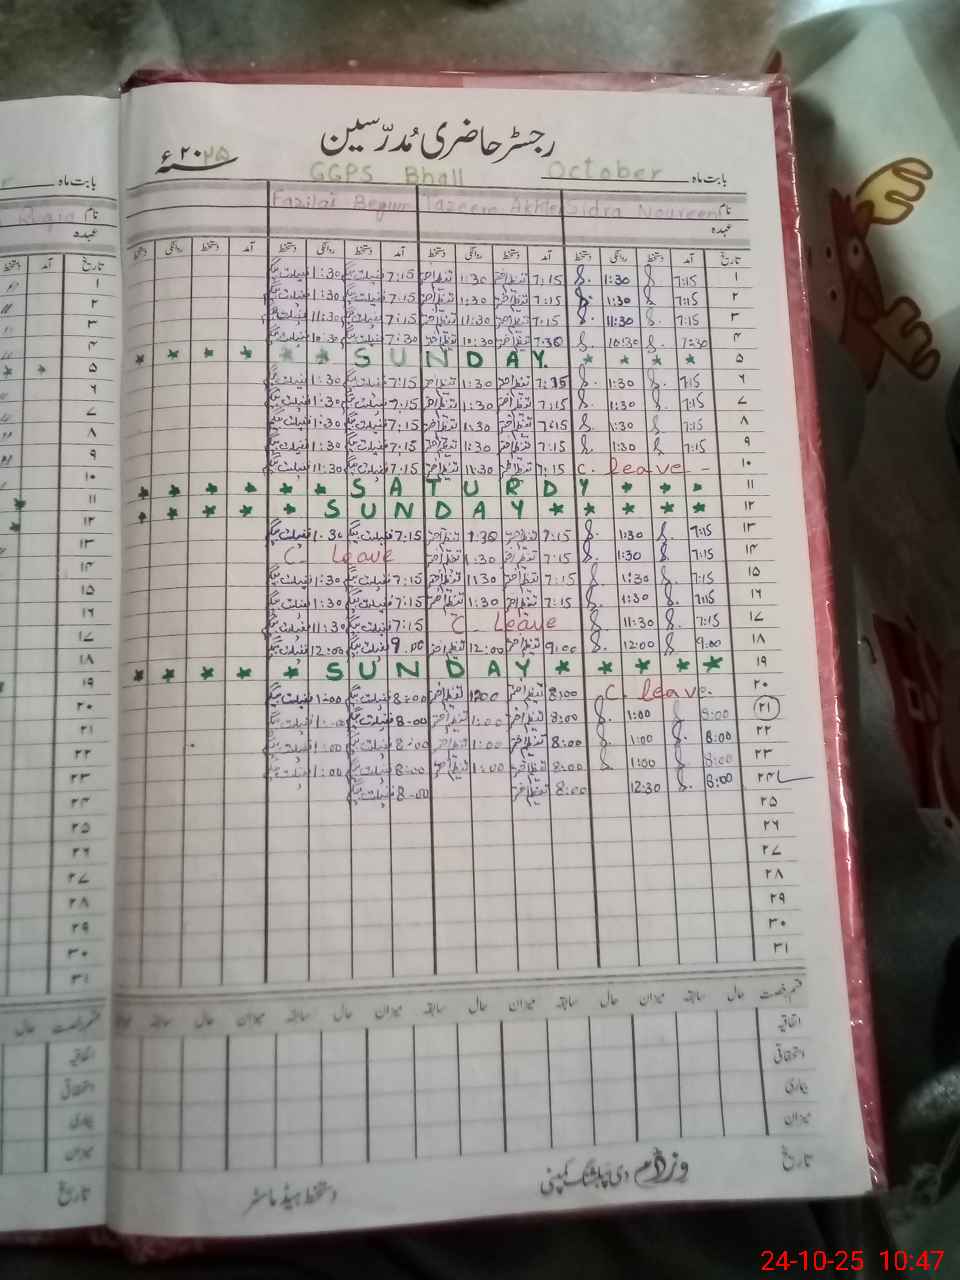 رجسٹر حاضری مُدرّسین
بابت ماہ October GGPS Bhall ۲۰۲۵ء
نام Sidra Noureen Tazeem Akhter Fazilat Begum
عہدہ
تاریخ آمد دستخط روانگی دستخط آمد دستخط روانگی دستخط آمد دستخط روانگی دستخط آمد دستخط روانگی دستخط
۱ 7:15 1:30 7:15 تنظیم اختر 1:30 تنظیم اختر 7:15 فضیلت بیگم 1:30 فضیلت بیگم
۲ 7:15 1:30 7:15 تنظیم اختر 1:30 تنظیم اختر 7:15 فضیلت بیگم 1:30 فضیلت بیگم
۳ 7:15 11:30 7:15 تنظیم اختر 11:30 تنظیم اختر 7:15 فضیلت بیگم 11:30 فضیلت بیگم
۴ 7:30 10:30 7:30 تنظیم اختر 10:30 تنظیم اختر 7:30 فضیلت بیگم 10:30 فضیلت بیگم
۵ SUNDAY
۶ 7:15 1:30 7:15 تنظیم اختر 1:30 تنظیم اختر 7:15 فضیلت بیگم 1:30 فضیلت بیگم
۷ 7:15 1:30 7:15 تنظیم اختر 1:30 تنظیم اختر 7:15 فضیلت بیگم 1:30 فضیلت بیگم
۸ 7:15 1:30 7:15 تنظیم اختر 1:30 تنظیم اختر 7:15 فضیلت بیگم 1:30 فضیلت بیگم
۹ 7:15 1:30 7:15 تنظیم اختر 1:30 تنظیم اختر 7:15 فضیلت بیگم 1:30 فضیلت بیگم
۱۰ C. leave - 7:15 تنظیم اختر 11:30 تنظیم اختر 7:15 فضیلت بیگم 11:30 فضیلت بیگم
۱۱ SATURDY
۱۲ SUNDAY
۱۳ 7:15 1:30 7:15 تنظیم اختر 1:30 تنظیم اختر 7:15 فضیلت بیگم 1:30 فضیلت بیگم
۱۴ 7:15 1:30 7:15 تنظیم اختر 1:30 تنظیم اختر C. leave
۱۵ 7:15 1:30 7:15 تنظیم اختر 1130 تنظیم اختر 7:15 فضیلت بیگم 1:30 فضیلت بیگم
۱۶ 7:15 1:30 7:15 تنظیم اختر 1:30 تنظیم اختر 7:15 فضیلت بیگم 1:30 فضیلت بیگم
۱۷ 7:15 11:30 C. leave 7:15 فضیلت بیگم 11:30 فضیلت بیگم
۱۸ 9:00 12:00 9:00 تنظیم اختر 12:00 تنظیم اختر 9:00 فضیلت بیگم 12:00 فضیلت بیگم
۱۹ SUNDAY
۲۰ C. leave. 8:00 تنظیم اختر 1200 تنظیم اختر 8:00 فضیلت بیگم 1:00 فضیلت بیگم
۲۱ 8:00 1:00 8:00 تنظیم اختر 1:00 تنظیم اختر 8:00 فضیلت بیگم 1:00 فضیلت بیگم
۲۲ 8:00 1:00 8:00 تنظیم اختر 1:00 تنظیم اختر 8:00 فضیلت بیگم 1:00 فضیلت بیگم
۲۳ 8:00 1:00 8:00 تنظیم اختر 1:00 تنظیم اختر 8:00 فضیلت بیگم 1:00 فضیلت بیگم
۲۴ 8:00 12:30 8:00 تنظیم اختر 8:00 فضیلت بیگم
۲۵
۲۶
۲۷
۲۸
۲۹
۳۰
۳۱
قسم رخصت حال سابقہ میزان حال سابقہ میزان حال سابقہ میزان حال سابقہ میزان حال سابقہ
اتفاقیہ
استحقاقی
بیماری
میزان
تاریخ دی پبلشنگ کمپنی دستخط ہیڈ ماسٹر
بابت ماہ
نام
عہدہ
تاریخ آمد دستخط
۱
۲
۳
۴
۵
۶
۷
۸
۹
۱۰
۱۱
۱۲
۱۳
۱۴
۱۵
۱۶
۱۷
۱۸
۱۹
۲۰
۲۱
۲۲
۲۳
۲۴
۲۵
۲۶
۲۷
۲۸
۲۹
۳۰
۳۱
قسم رخصت حال
اتفاقیہ
استحقاقی
بیماری
میزان
تاریخ
24-10-25 10:47